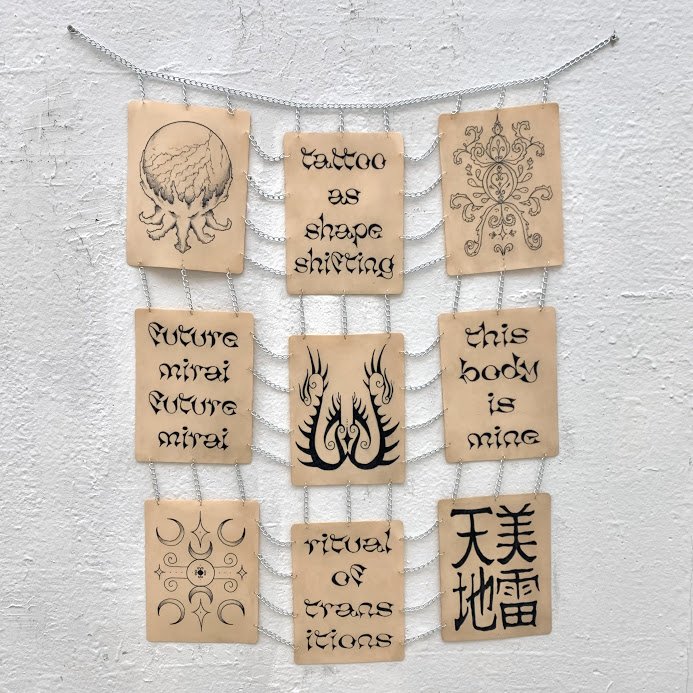 tattoo
as
shape
shifting
future
mirai
future
mirai
this
body
is
mine
ritual
of
trans
itions
天美
地雷